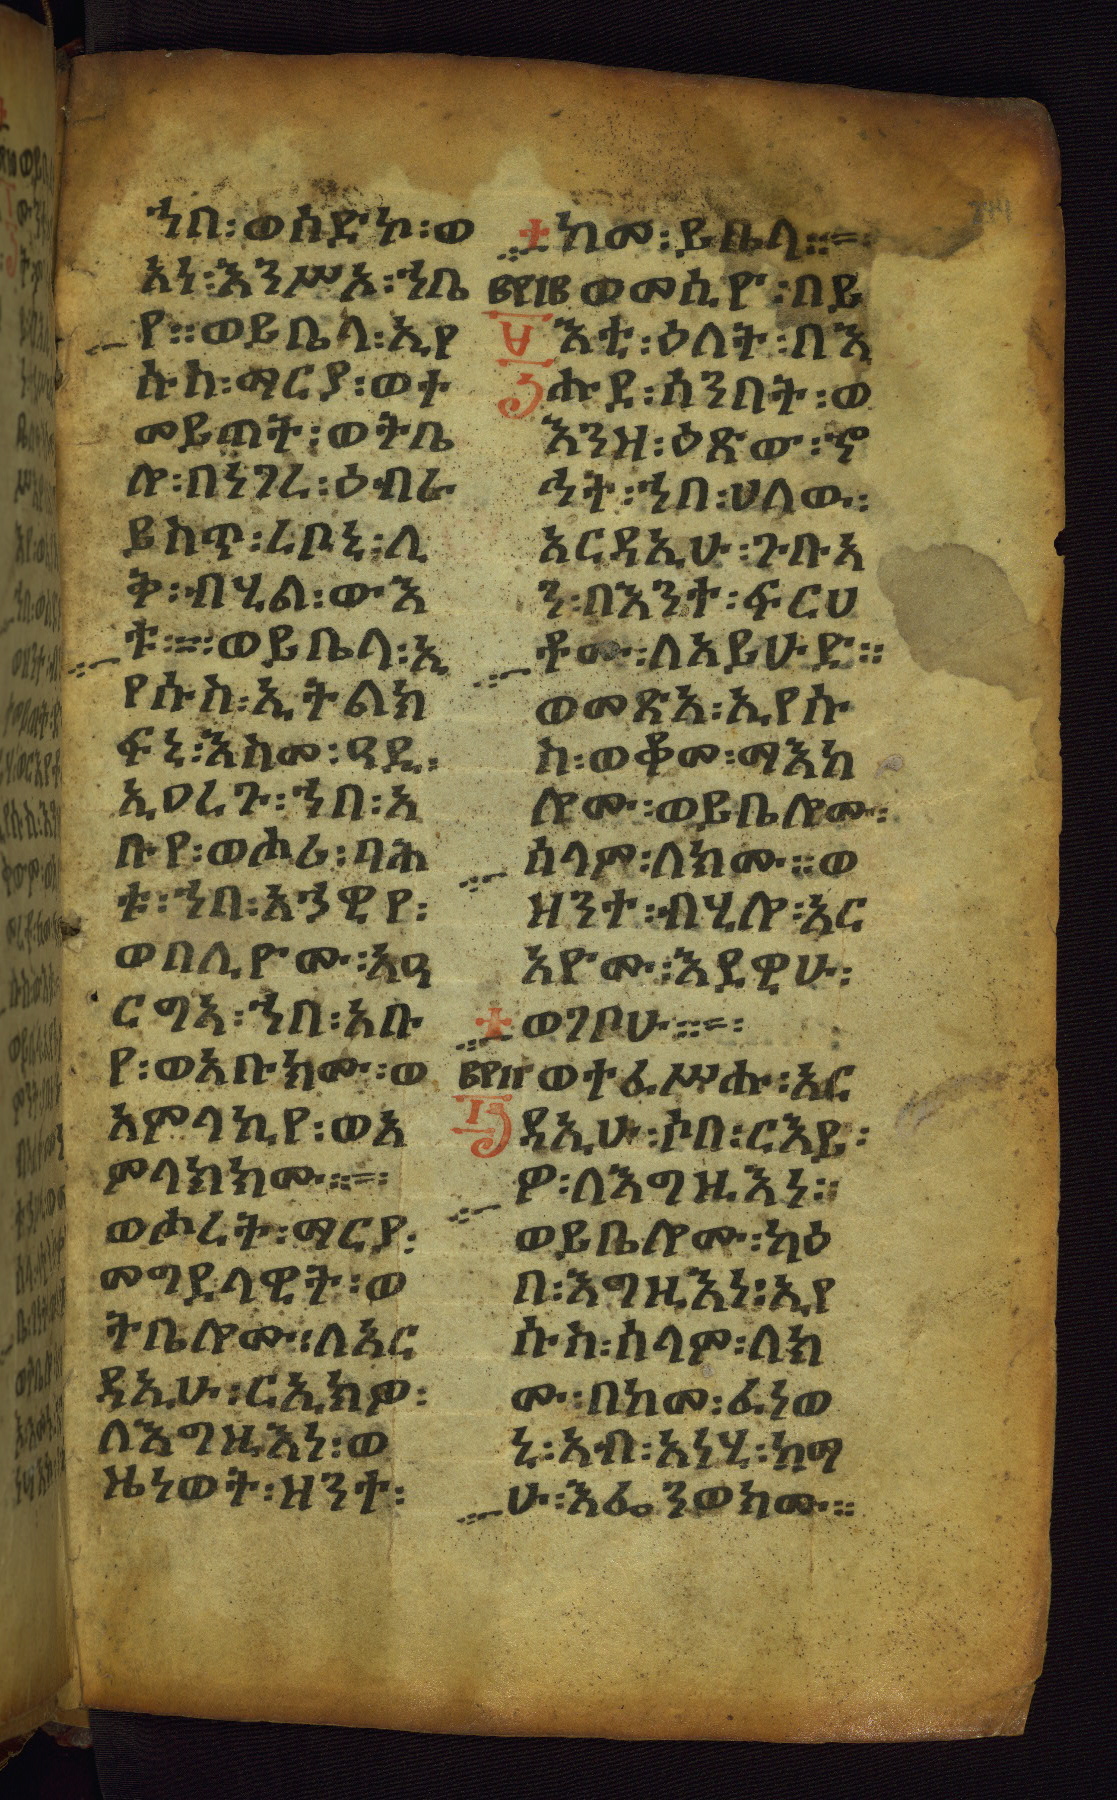 ኀበ፡ወሰድኮ፡ወ
አነ፡እንሥአ፡ኀቤ
የ።ወይቤላ፡ኢየ
ሱስ፡ማርያ፡ወተ
መይጠት፡ወትቤ
ሎ፡በነገረ፡ዕብራ
ይስጥ፡ረቦኒ፡ሊ
ቅ፡ብሂል፡ውእ
ቱ፡፡ወይቤላ፡ኢ
የሱስ፡ኢትልክ
ፍኒ፡እስመ፡ዓዲ፡
ኢዐረጉ፡ኀበ፡አ
ቡየ፡ወሖሪ፡ባሕ
ቱ፡ኀበ፡አኀዊየ፡
ወበሊዮሙ፡አዓ
ርግአ፡ኀበ፡አቡ
የ፡ወአቡክሙ፡ወ
አምላኪየ፡ወአ
ምላክክሙ።፡
ወሖረት፡ማርያ፡
መግደላዊት፡ወ
ትቤሎሙ፡ለአር
ዳኢሁ፡ርኢክዎ፡
ለእግዚእነ፡ወ
ዜነወት፡ዘንተ፡
ከመ፡ይቤላ።፡
፪፻፲፪ ወመሲዮ፡በይ
እቲ፡ዕለት፡በእ
ሑድ፡ሰንበት፡ወ
እንዘ፡ዕጽው፡ኆ
ኅት፡ኀበ፡ሀለው፡
አርዳኢሁ፡ጉቡአ
ን፡በእንተ፡ፍርሀ
ቶሙ፡ለአይሁድ።
ወመጽአ፡ኢየሱ
ስ፡ወቆመ፡ማእከ
ሎሙ፡ወይቤሎሙ፡
ሰላም፡ለክሙ።ወ
ዘንተ፡ብሂሎ፡አር
አዮሙ፡እደዊሁ፡
ወገቦሁ።፡
፪፻፲፫ ወተፈሥሑ፡አር
ዳኢሁ፡ሶበ፡ርእይ፡
ዎ፡ለእግዚእነ።
ወይቤሎሙ፡ካዕ
በ፡እግዚእነ፡ኢየ
ሱስ፡ሰላም፡ለክ
ሙ፡በከመ፡ፈነወ
ኒ፡አብ፡አነሂ፡ከማ
ሁ፡እፌንወክሙ።